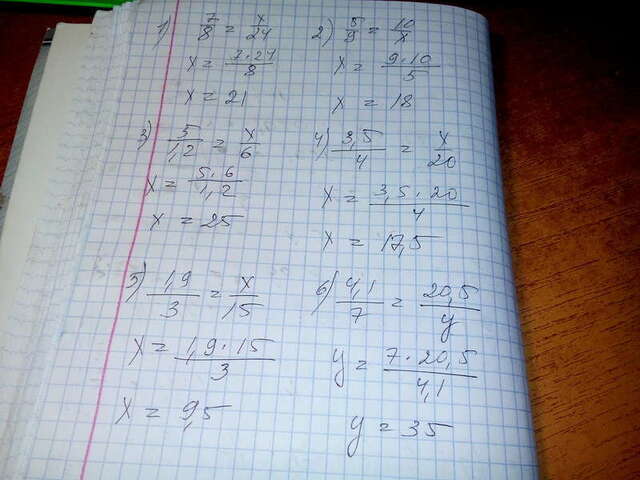 1) 7/8 = x/24
x = 7·24/8
x = 21
2) 5/9 = 10/x
x = 9·10/5
x = 18
3) 5/1,2 = x/6
x = 5·6/1,2
x = 25
4) 3,5/4 = x/20
x = 3,5·20/4
x = 17,5
5) 1,9/3 = x/15
x = 1,9·15/3
x = 9,5
6) 4,1/7 = 20,5/y
y = 7·20,5/4,1
y = 35